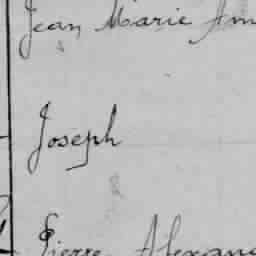 Jean Marie Am
Joseph
Pierre Alexan